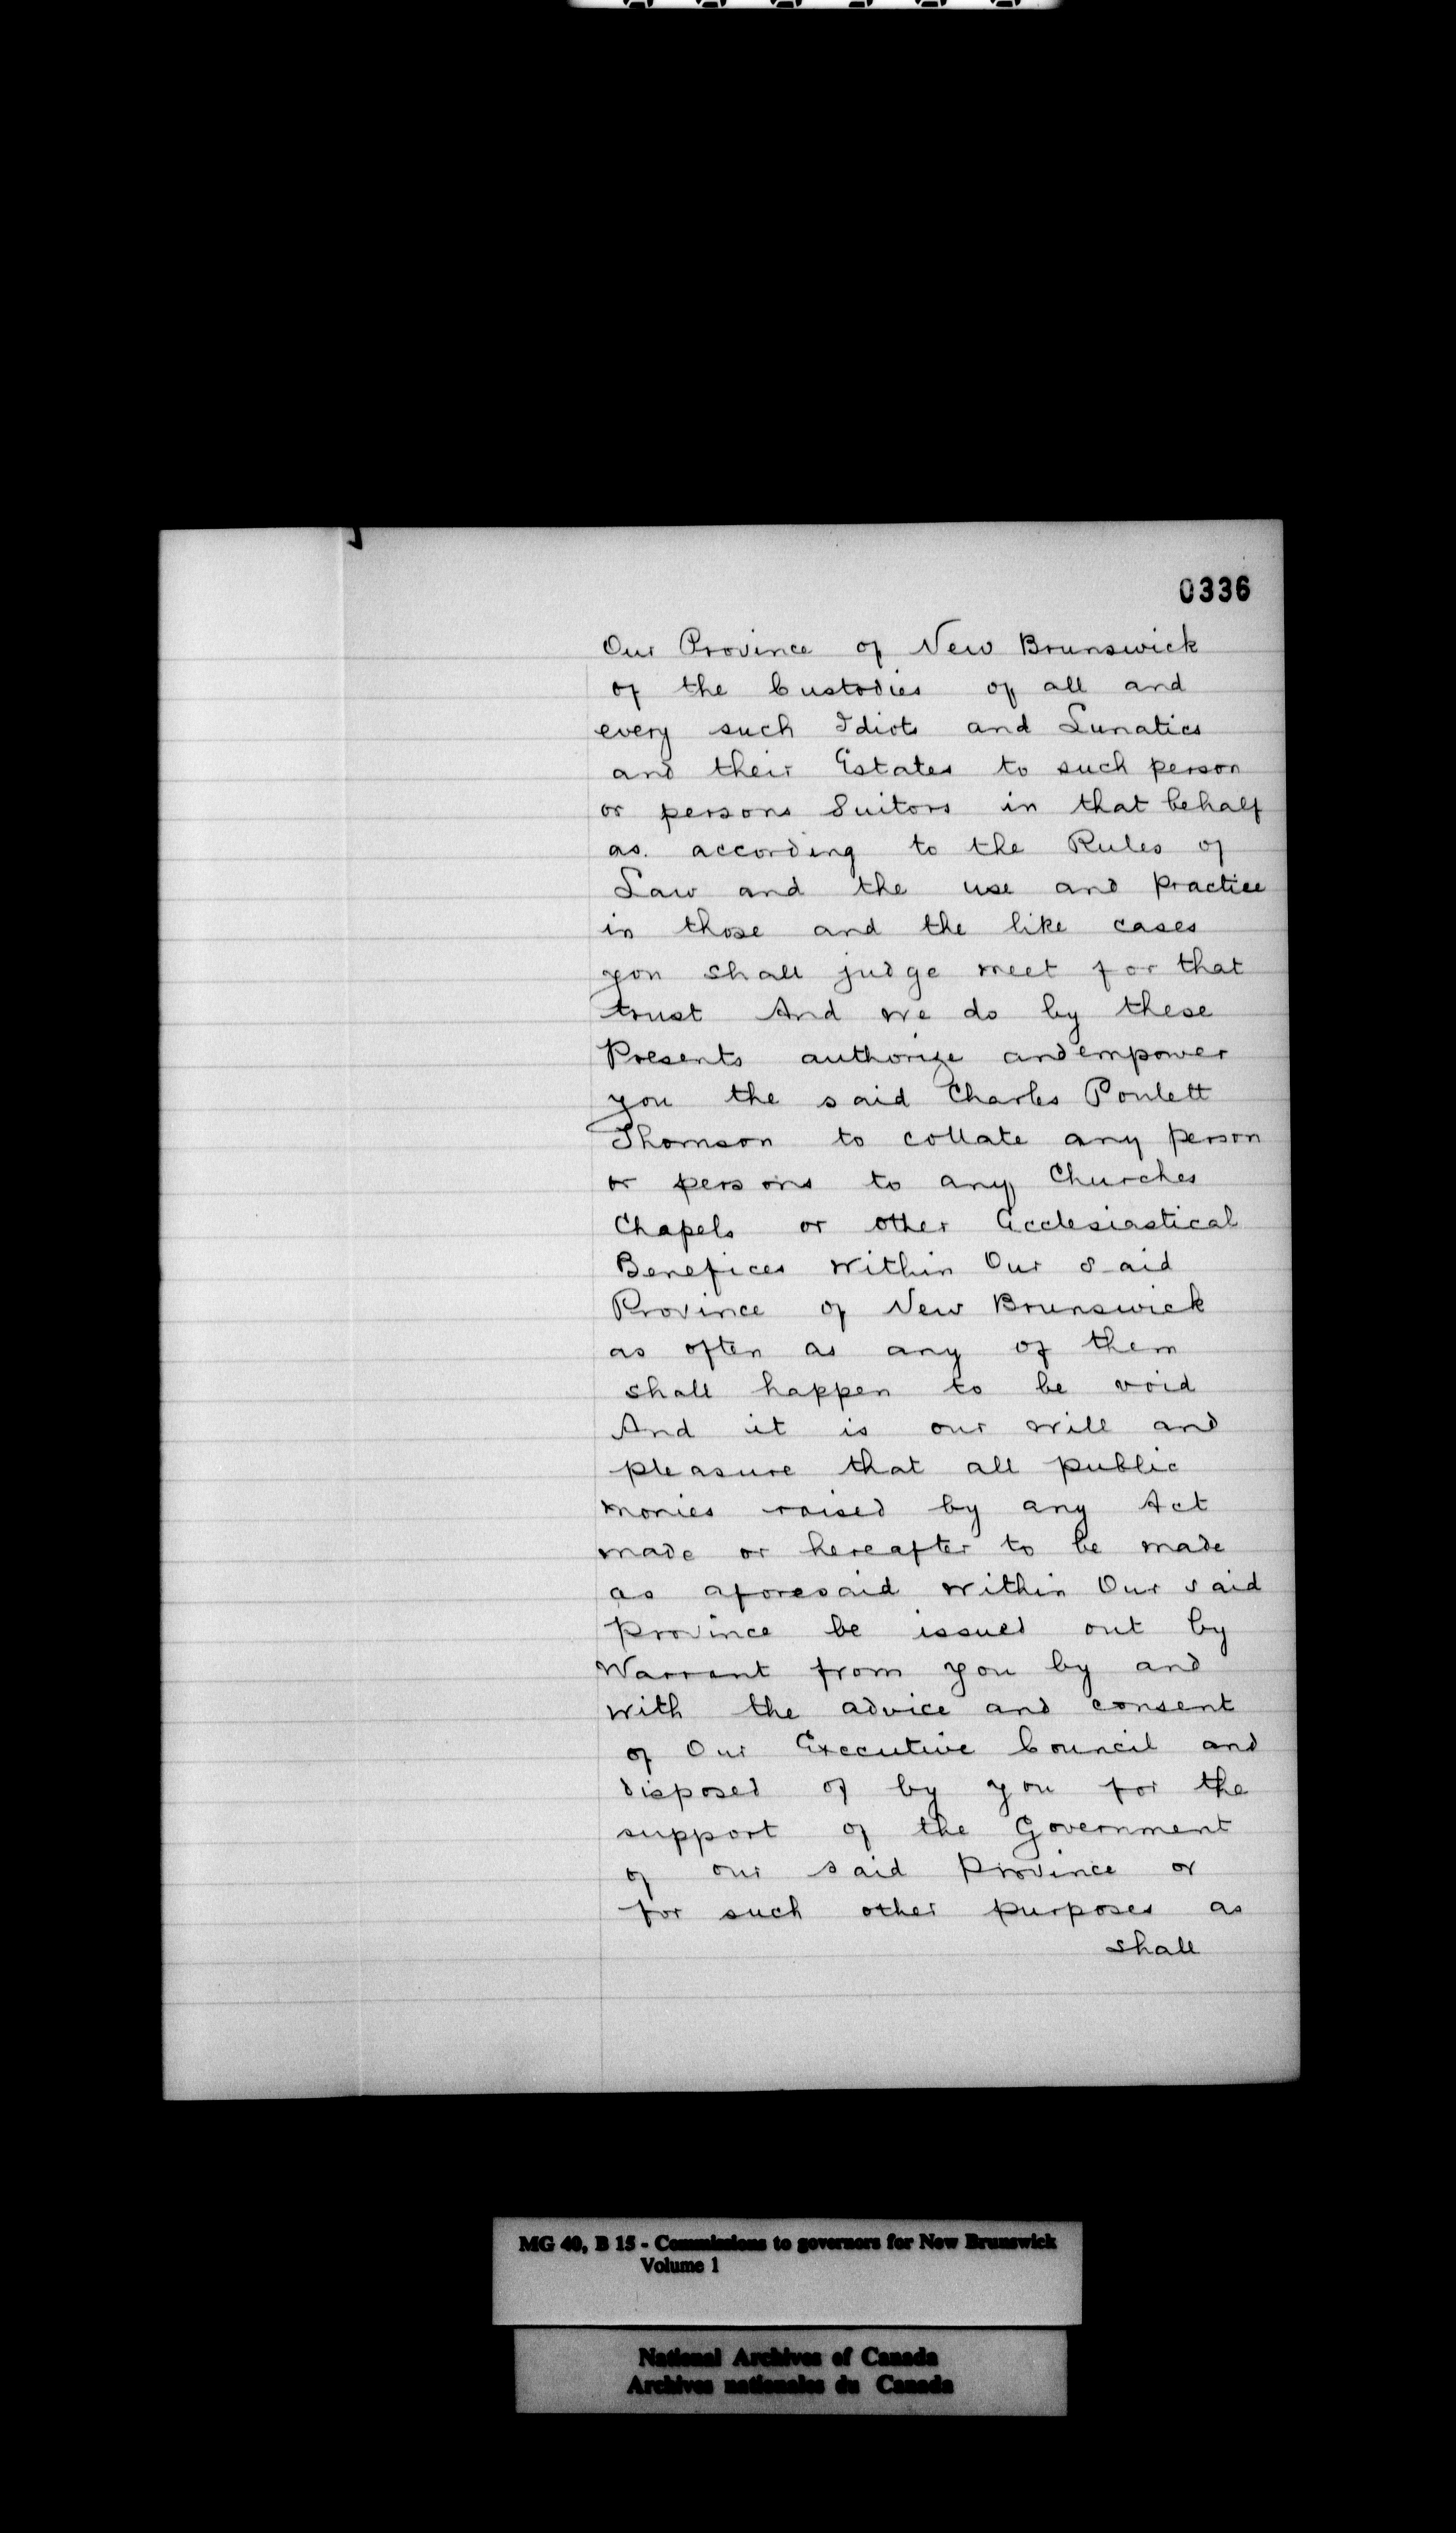 0336
Our Province of New Brunswick
of the Custodies of all and
every such Idiots and Lunatics
and their Estates to such person
or persons Suitors in that behalf
as. according to the Rules of
Law and the use and practice
in those and the like cases
you shall judge meet for that
trust And we do by these
Presents authorize and empower
you the said Charles Poulett
Thomson to collate any person
or persons to any Churches
Chapels or other Ecclesiastical
Benefices within Our said
Province of New Brunswick
as often as any of them
shall happen to be void
And it is our will and
pleasure that all public
monies raised by any Act
made or hereafter to be made
as aforesaid within Our said
Province be issued out by
Warrant from you by and
with the advice and consent
of Our Executive Council and
disposed of by you for the
support of the Government
of our said Province or
for such other purposes as
shall
MG 40, B 15 - Commissions to governors for New Brunswick
Volume 1
National Archives of Canada
Archives nationales du Canada